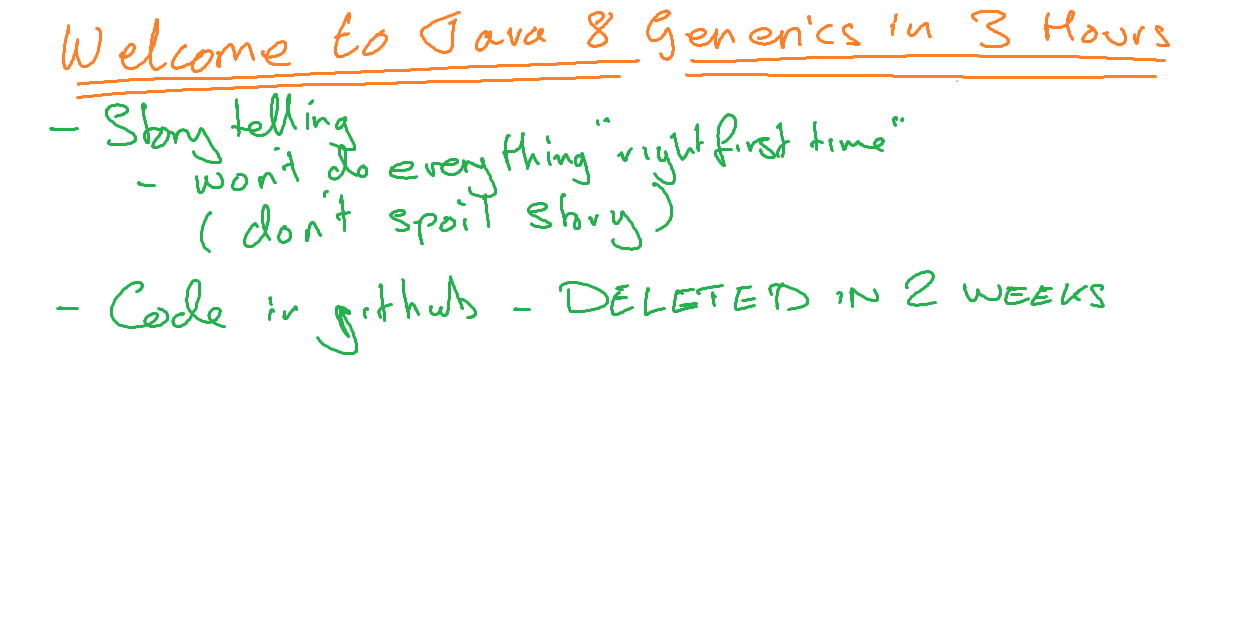 Welcome to Java 8 Generics in 3 Hours
- Story telling
- won't do everything "right first time"
(don't spoil story)
- Code in github - DELETED IN 2 WEEKS